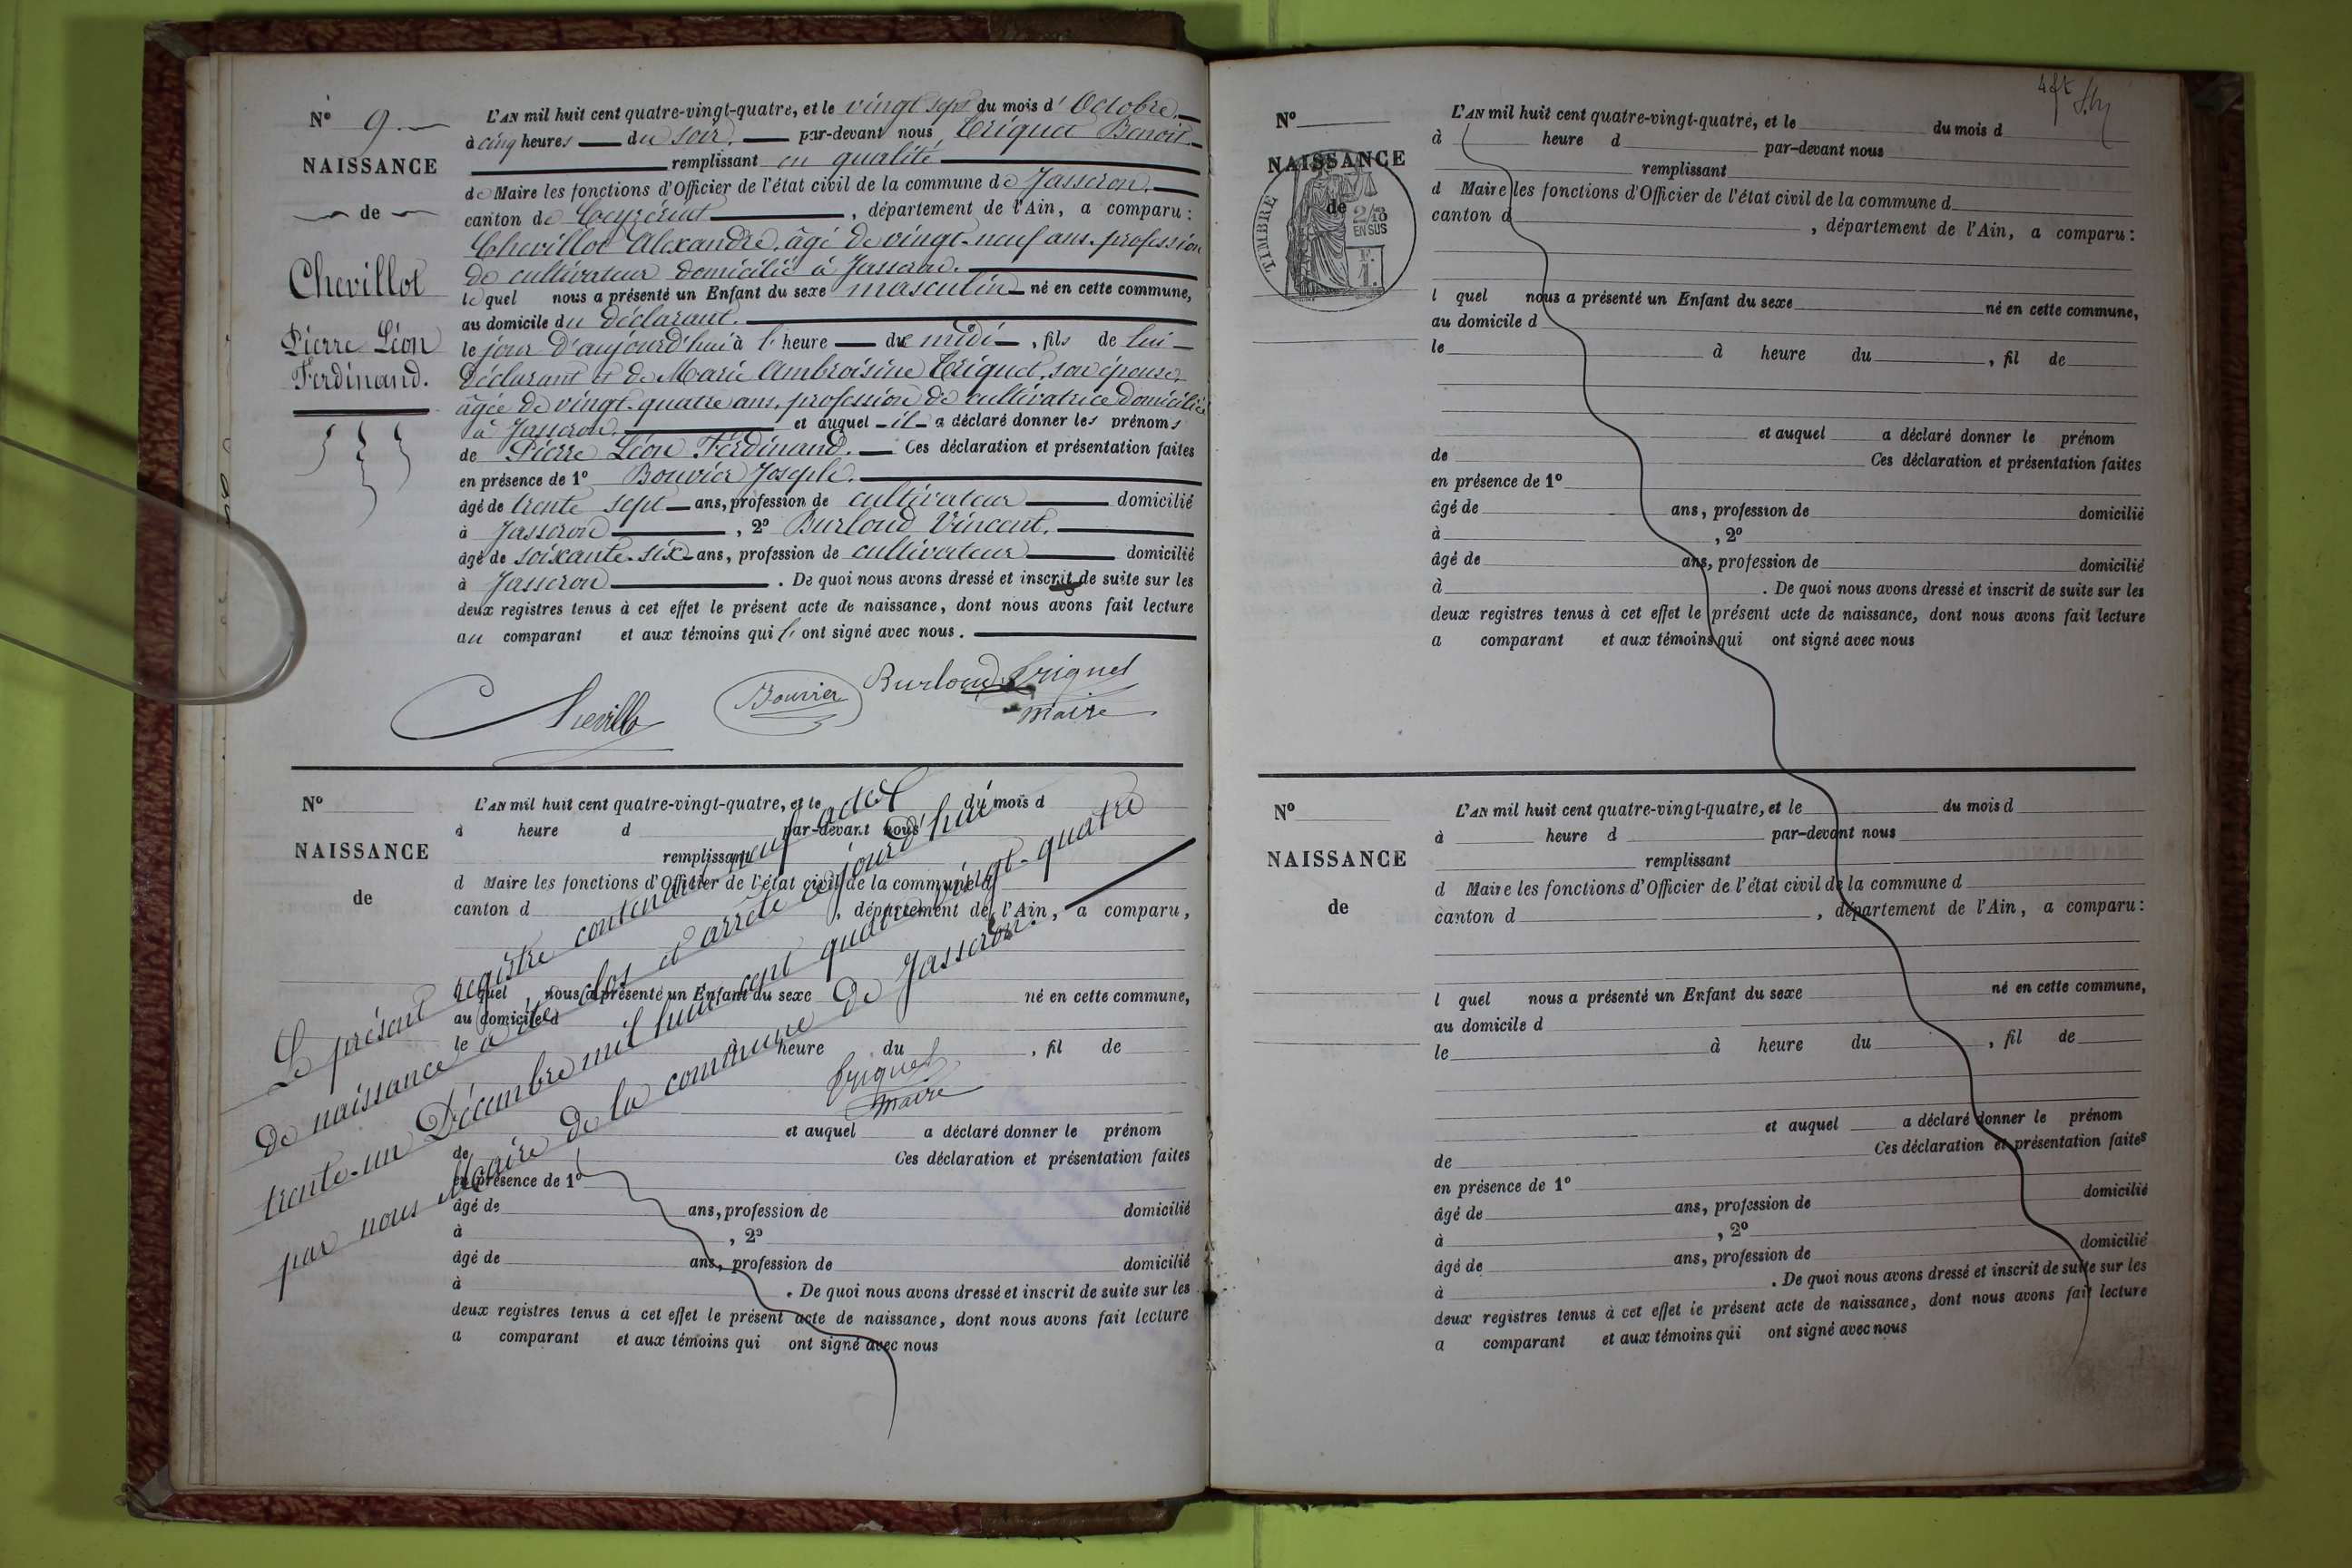 N° 9.
NAISSANCE
de
Chevillot
Pierre Léon
Ferdinand.
L'AN mil huit cent quatre-vingt-quatre, et le vingt sept du mois d'Octobre.
à cinq heures du soir, par-devant nous Triquet Benoit.
remplissant en qualité
de Maire les fonctions d'Officier de l'état civil de la commune de Jasseron.
canton de Ceyzériat, département de l'Ain, a comparu :
Chevillot Alexandre, âgé de vingt-neuf ans, profession
de cultivateur domicilié à Jasseron.
lequel nous a présenté un Enfant du sexe masculin né en cette commune,
au domicile du déclarant.
le jour d'aujourd'hui à l'heure de midi, fils de lui
déclarant et de Marie Ambroisine Triquet, son épouse,
âgée de vingt-quatre ans, profession de cultivatrice domiciliée
à Jasseron. et auquel il a déclaré donner les prénoms
de Pierre Léon Ferdinand. Ces déclaration et présentation faites
en présence de 1° Bouvier Joseph.
âgé de trente sept ans, profession de cultivateur domicilié
à Jasseron, 2° Burloud Vincent.
âgé de soixante-six ans, profession de cultivateur domicilié
à Jasseron. De quoi nous avons dressé et inscrit de suite sur les
deux registres tenus à cet effet le présent acte de naissance, dont nous avons fait lecture
au comparant et aux témoins qui l'ont signé avec nous.
Chevillo Bouvier Burloud Triquet
maire
N°
NAISSANCE
de
L'AN mil huit cent quatre-vingt-quatre, et le du mois d
à heure d par-devant nous
remplissant
d Maire les fonctions d'Officier de l'état civil de la commune d
canton d , département de l'Ain, a comparu,
l quel nous a présenté un Enfant du sexe né en cette commune,
au domicile d
le à heure du , fil de
et auquel a déclaré donner le prénom
de Ces déclaration et présentation faites
en présence de 1°
âgé de ans, profession de domicilié
à , 2°
âgé de ans, profession de domicilié
à . De quoi nous avons dressé et inscrit de suite sur les
deux registres tenus à cet effet le présent acte de naissance, dont nous avons fait lecture
a comparant et aux témoins qui ont signé avec nous
Le présent registre contenant neuf actes
de naissance a été clos et arrêté aujourd'hui
trente-un Décembre mil huit cent quatre vingt-quatre
par nous Maire de la commune de Jasseron.
Triquet
maire
N°
NAISSANCE
de
TIMBRE
2/10
EN SUS
F.
1.
L'AN mil huit cent quatre-vingt-quatre, et le du mois d
à heure d par-devant nous
remplissant
d Maire les fonctions d'Officier de l'état civil de la commune d
canton d , département de l'Ain, a comparu :
l quel nous a présenté un Enfant du sexe né en cette commune,
au domicile d
le à heure du , fil de
et auquel a déclaré donner le prénom
de Ces déclaration et présentation faites
en présence de 1°
âgé de ans, profession de domicilié
à , 2°
âgé de ans, profession de domicilié
à . De quoi nous avons dressé et inscrit de suite sur les
deux registres tenus à cet effet le présent acte de naissance, dont nous avons fait lecture
a comparant et aux témoins qui ont signé avec nous
N°
NAISSANCE
de
L'AN mil huit cent quatre-vingt-quatre, et le du mois d
à heure d par-devant nous
remplissant
d Maire les fonctions d'Officier de l'état civil de la commune d
canton d , département de l'Ain, a comparu :
l quel nous a présenté un Enfant du sexe né en cette commune,
au domicile d
le à heure du , fil de
et auquel a déclaré donner le prénom
de Ces déclaration et présentation faites
en présence de 1°
âgé de ans, profession de domicilié
à , 2°
âgé de ans, profession de domicilié
à . De quoi nous avons dressé et inscrit de suite sur les
deux registres tenus à cet effet le présent acte de naissance, dont nous avons fait lecture
a comparant et aux témoins qui ont signé avec nous